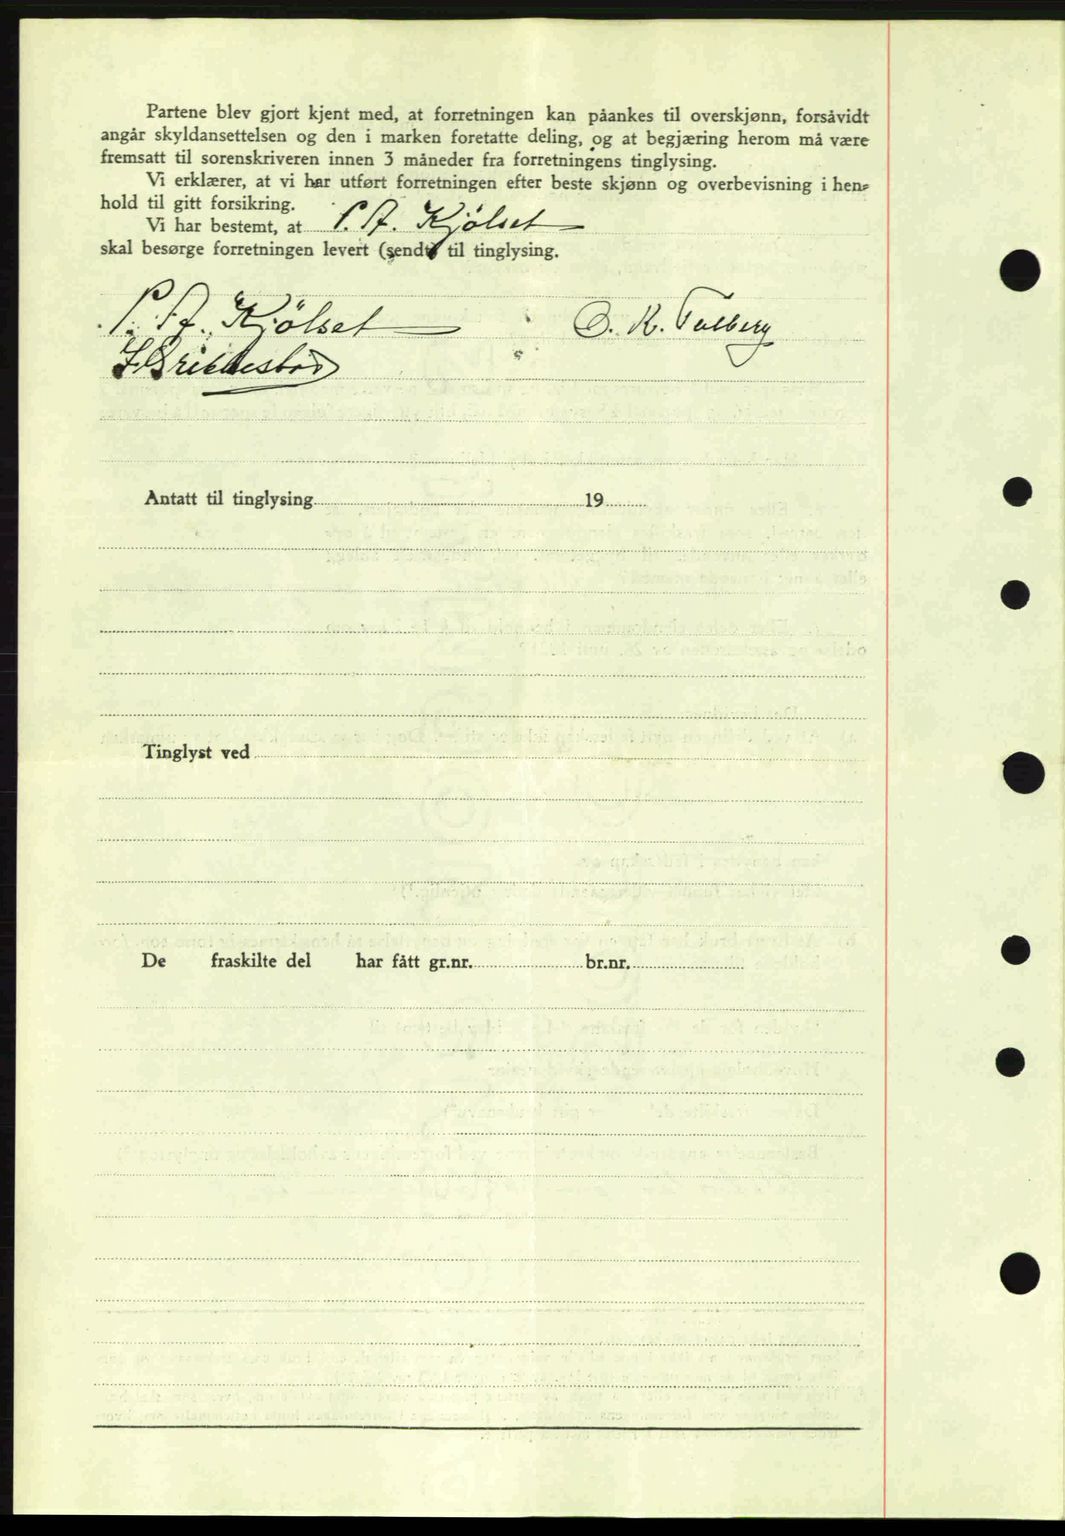 Partene blev gjort kjent med, at forretningen kan påankes til overskjønn, forsåvidt
angår skyldansettelsen og den i marken foretatte deling, og at begjæring herom må være
fremsatt til sorenskriveren innen 3 måneder fra forretningens tinglysing.
Vi erklærer, at vi har utført forretningen efter beste skjønn og overbevisning i hen-
hold til gitt forsikring.
Vi har bestemt, at P. A. Kjölset
skal besørge forretningen levert (sendt) til tinglysing.
P. A. Kjölset O. K. Talberg
Antatt til tinglysing 19
Tinglyst ved
De fraskilte del har fått gr.nr. br.nr.